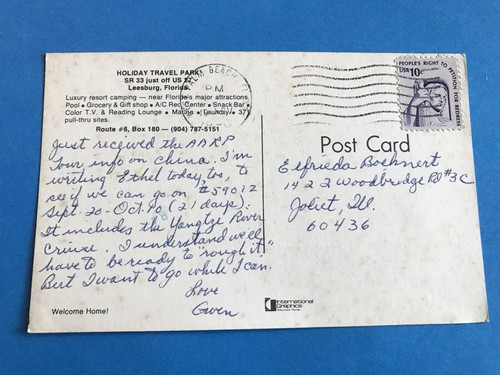 HOLIDAY TRAVEL PARK
SR 33 just off US 27
Leesburg, Florida
Luxury resort camping — near Florida's major attractions.
Pool • Grocery & Gift shop • A/C Rec. Center • Snack Bar
Color T.V. & Reading Lounge • Marina • Laundry • 37
pull-thru sites.
Route #6, Box 180 — (904) 787-5151
Just received the AARP
tour info on China. I'm
writing Ethel today, too, to
see if we can go on #59012
Sept. 20-Oct. 10 (21 days).
It includes the Yangtzi River
Cruise. I understand we'll
have to be ready to "rough it".
But I want to go while I can.
Love
Gwen
Welcome Home!
BEACH
PM
PEOPLE'S RIGHT TO PETITION FOR REDRESS
USA 10c
Post Card
Elfrieda Boehnert
1422 Woodbridge Rd #3C
Joliet, Ill.
60436
International
Graphics